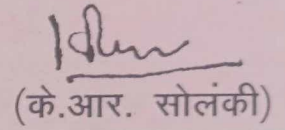 (के.आर. सोलंकी)